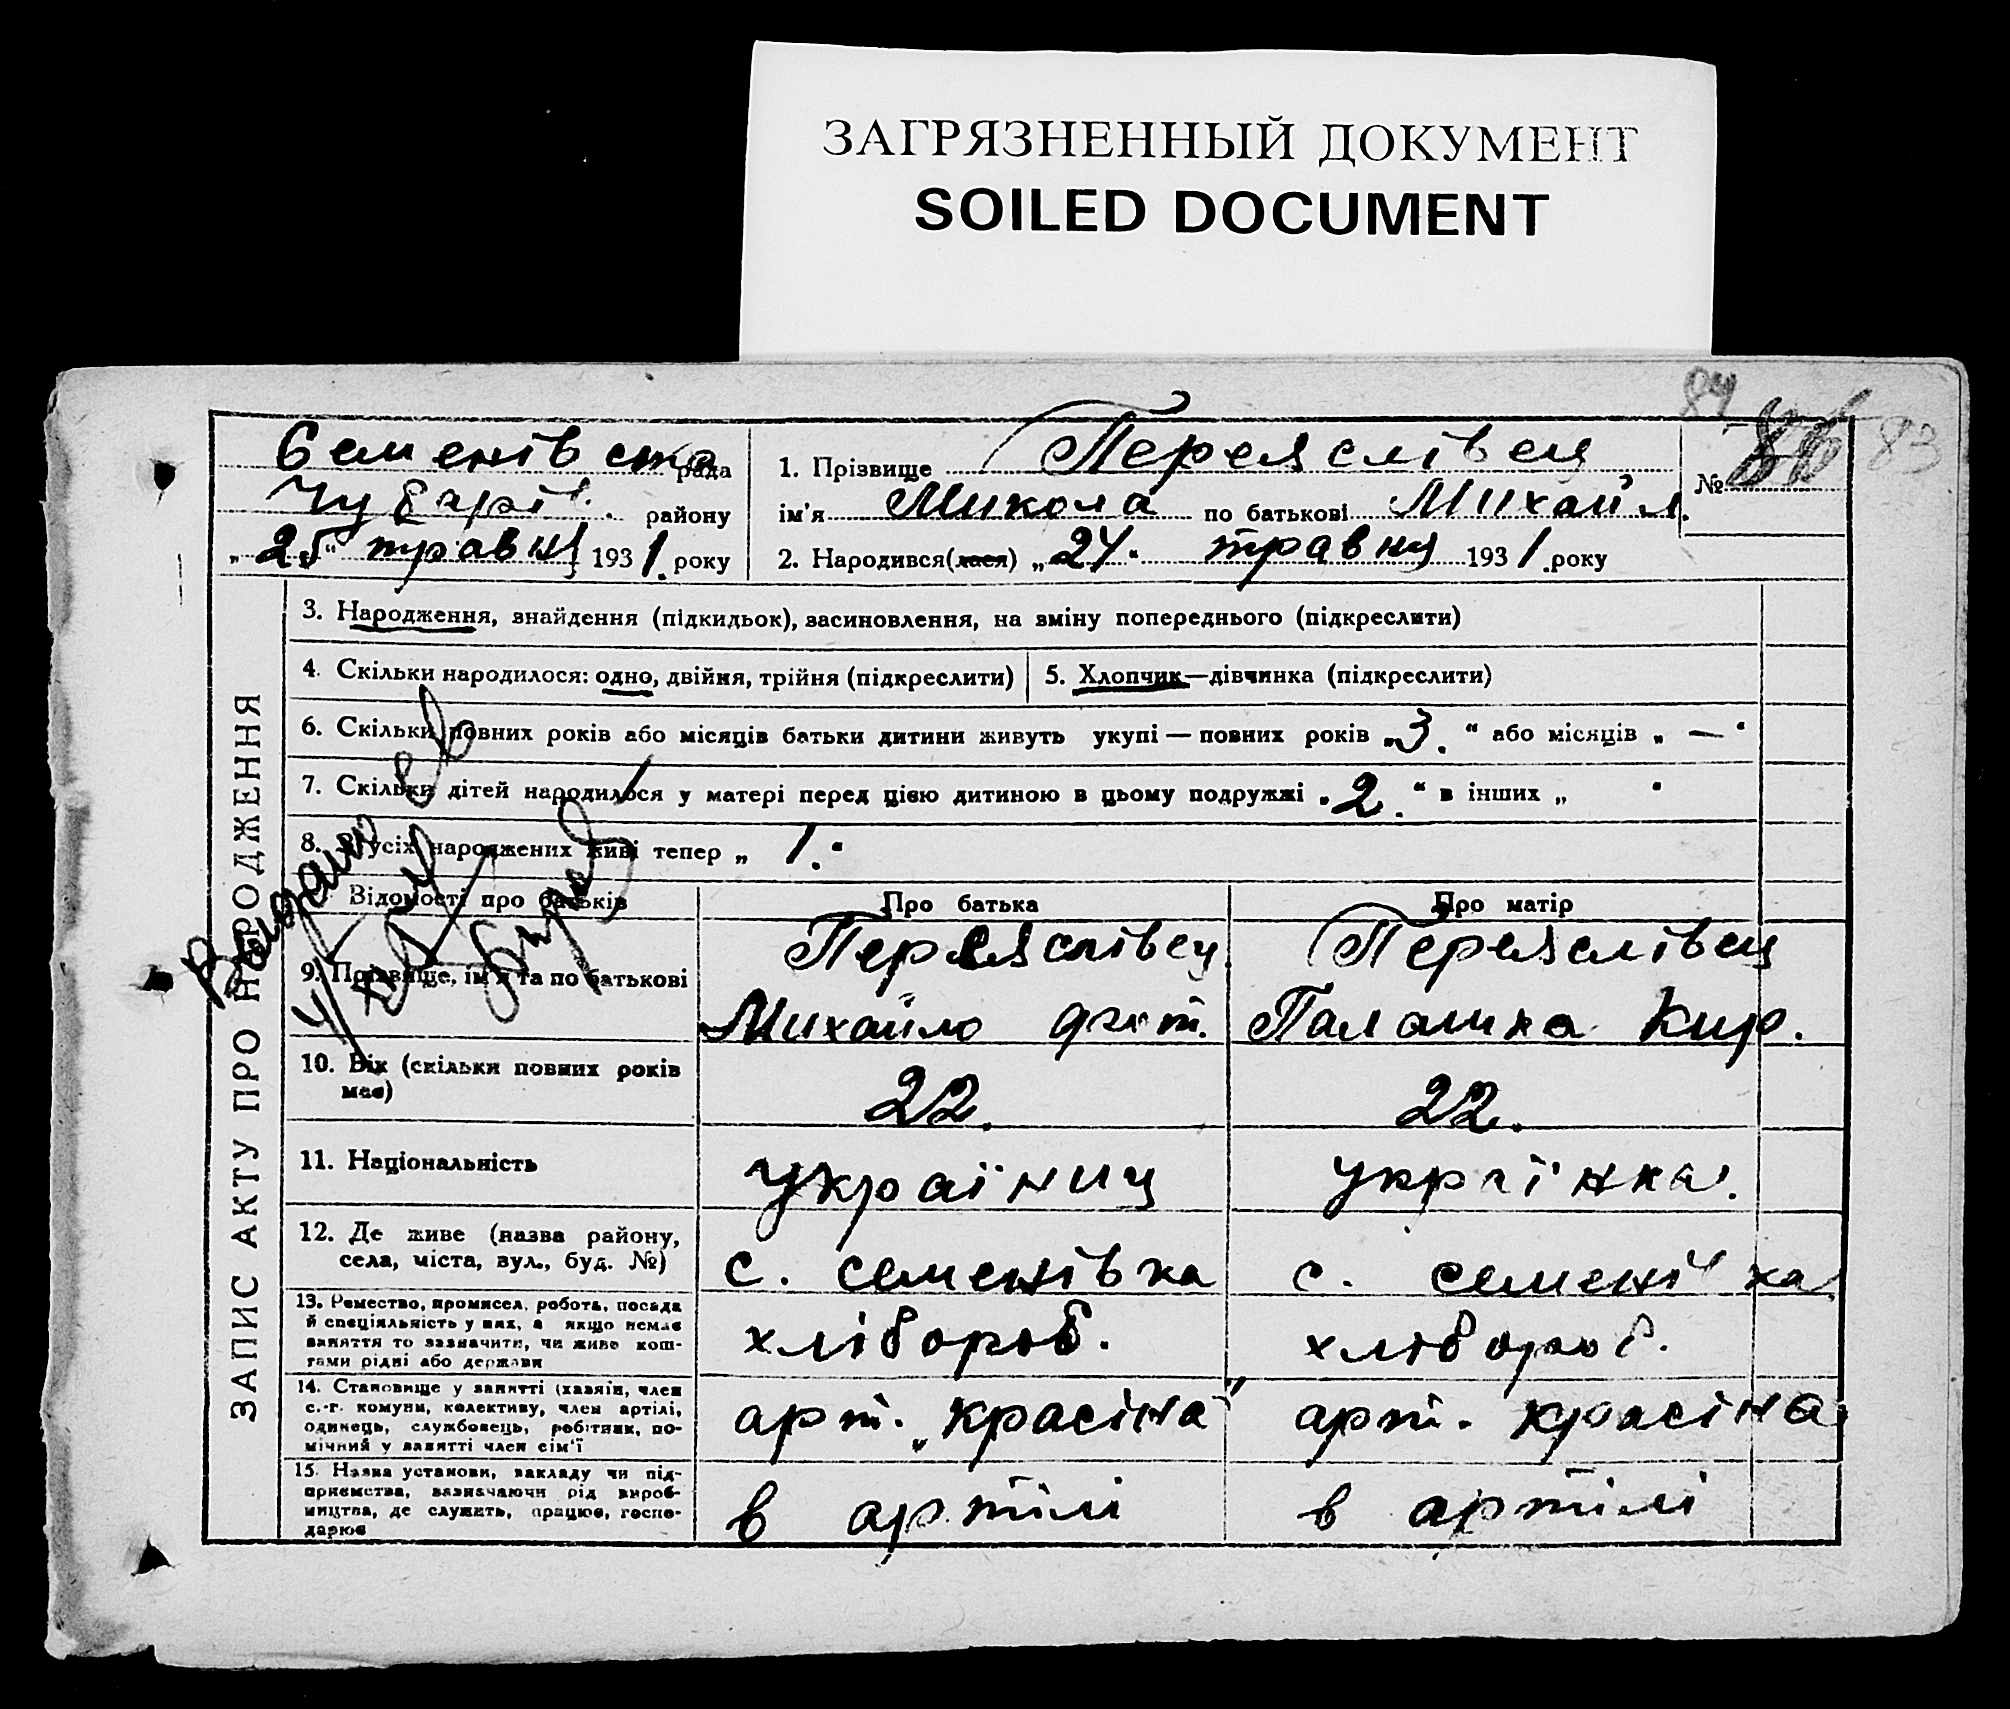 ЗАГРЯЗНЕННЫЙ ДОКУМЕНТ
SOILED DOCUMENT
84
83
Семенівська рада
Чубарів. району
„25“ травня 1931. року
1. Прізвище Переяслівец
ім'я Микола по батькові Михайл.
№ 86
2. Народився(лася) „24“ травня 1931. року
ЗАПИС АКТУ ПРО НАРОДЖЕННЯ
3. Народження, знайдення (підкидьок), засиновлення, на зміну попереднього (підкреслити)
4. Скільки народилося: одно, двійня, трійня (підкреслити)
5. Хлопчик—дівчинка (підкреслити)
6. Скільки повних років або місяців батьки дитини живуть укупі — повних років „3.“ або місяців „—“
7. Скільки дітей народилося у матері перед цією дитиною в цьому подружжі „2.“ в інших „ “
8. З усіх народжених живі тепер „1.“
Відомості про батьків
Про батька
Про матір
9. Прізвище, ім'я та по батькові
Переяслівец
Михайло
Переяслівец
Палашка Кир.
10. Вік (скільки повних років має)
22.
22.
11. Національність
українец
українка.
12. Де живе (назва району, села, міста, вул., буд. №)
с. Семенівка
с. Семенівка
13. Ремество, промисел, робота, посада й спеціяльність у них, а якщо немає заняття то зазначити, чи живе коштами рідні або держави
хлібороб.
хлібороб.
14. Становище у занятті (хазяїн, член с.-г. комуни, колективу, член артілі, одинець, службовець, робітник, помічний у занятті член сім'ї
арт. „Красіна“
арт. Красіна
15. Назва установи, закладу чи підприємства, зазначаючи рід виробництва, де служить, працює, господарює
в артілі
в артілі